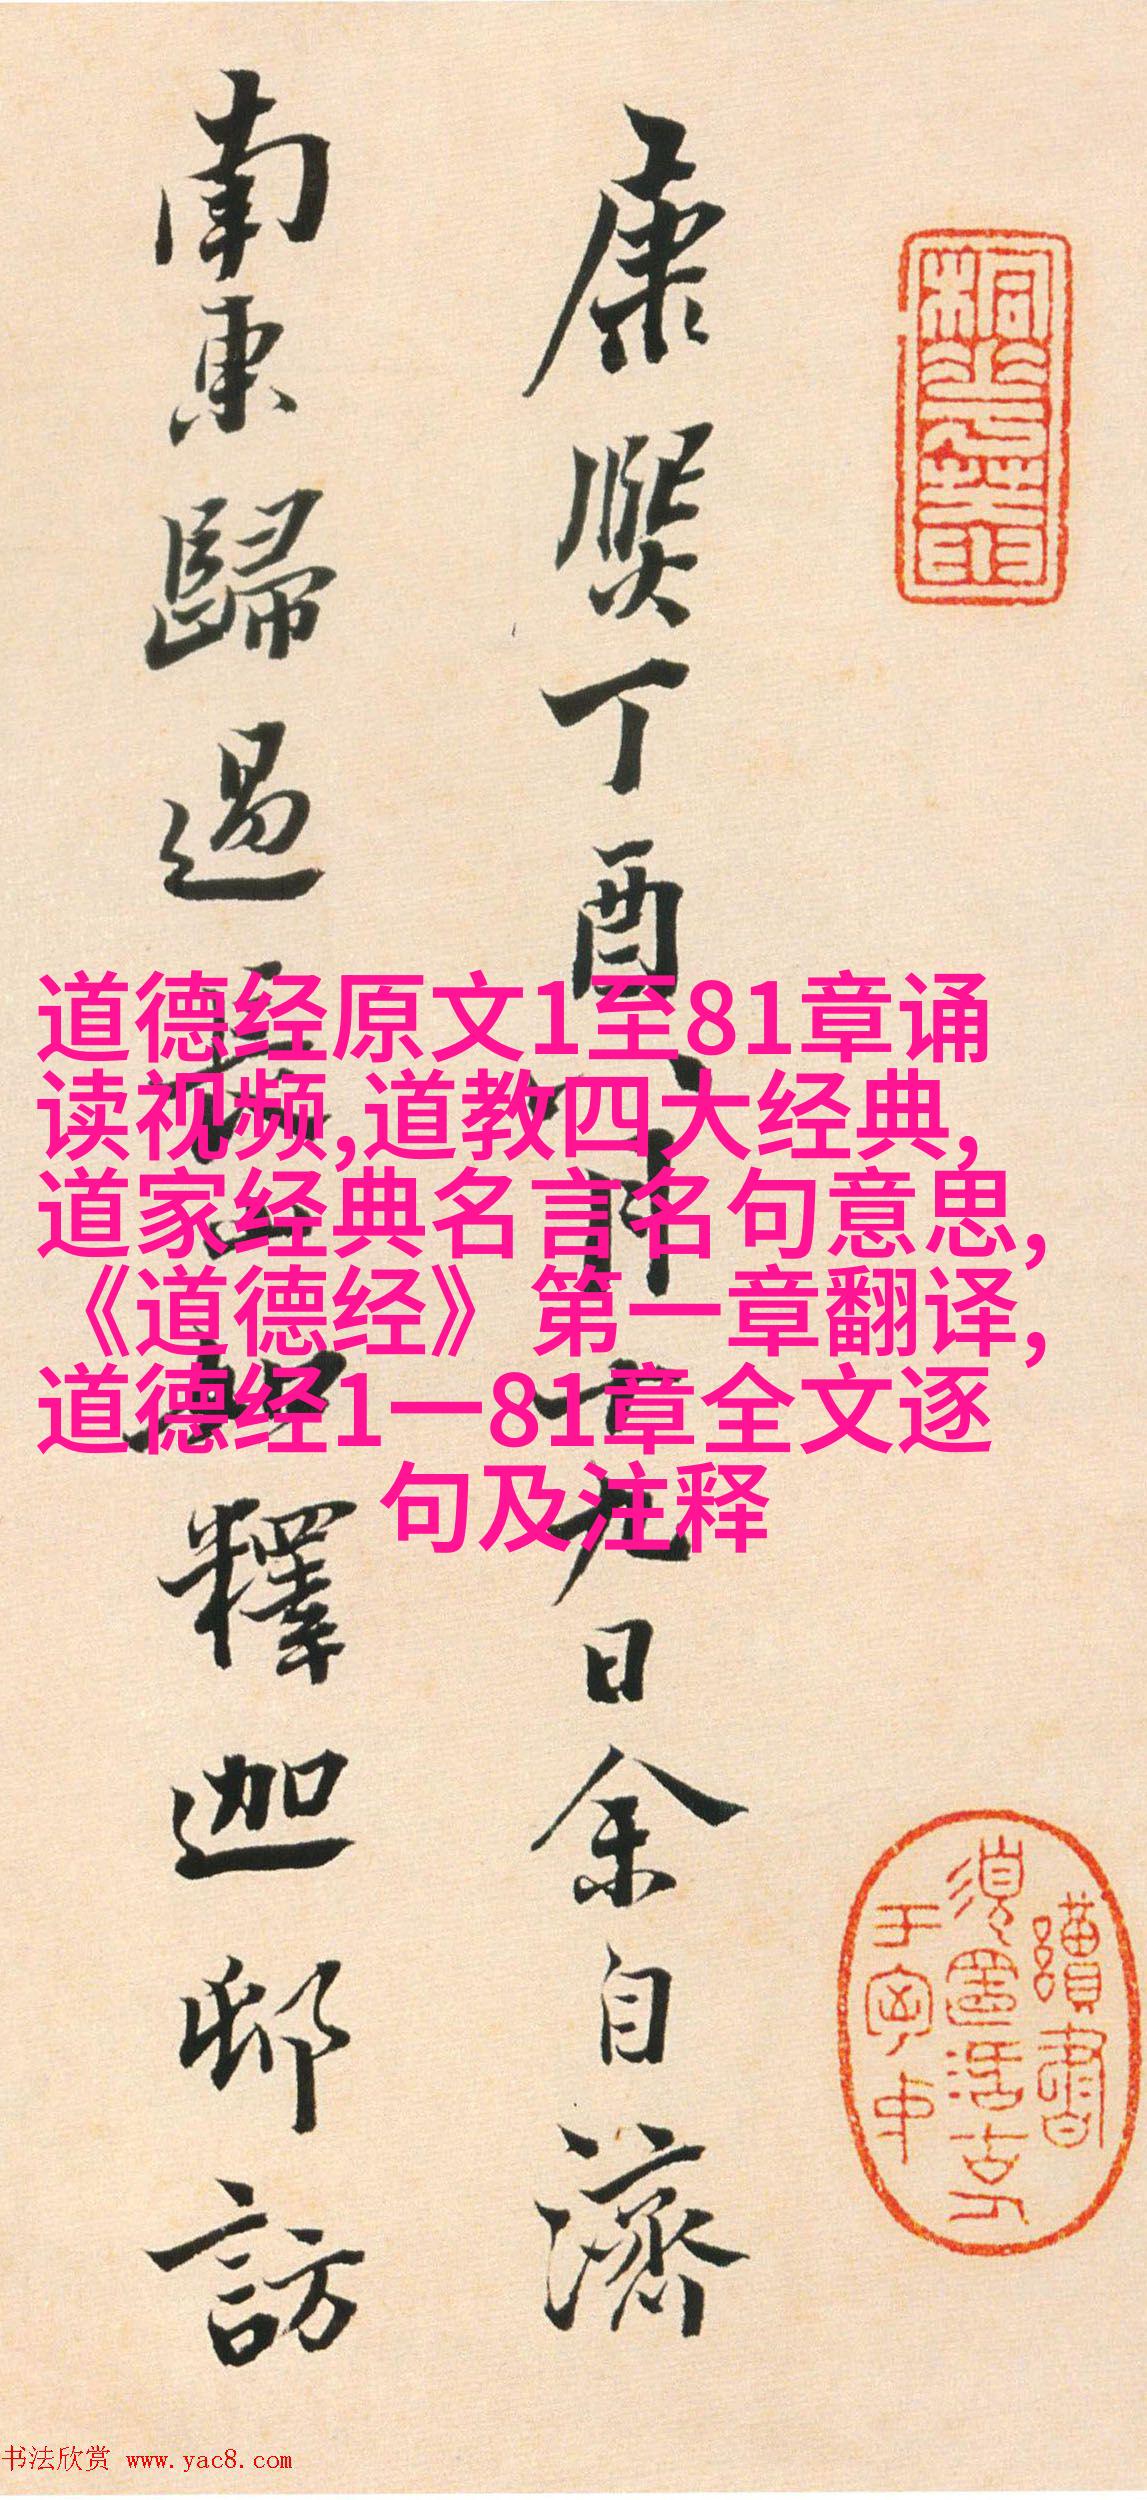 康熙丁酉八月十九日余自濟
南東歸過釋迦邨訪
道德经原文1至81章诵
读视频,道教四大经典,
道家经典名言名句意思,
《道德经》 第一章翻译,
道德经1一81章全文逐
句及注释
书法欣赏 www.yac8.com